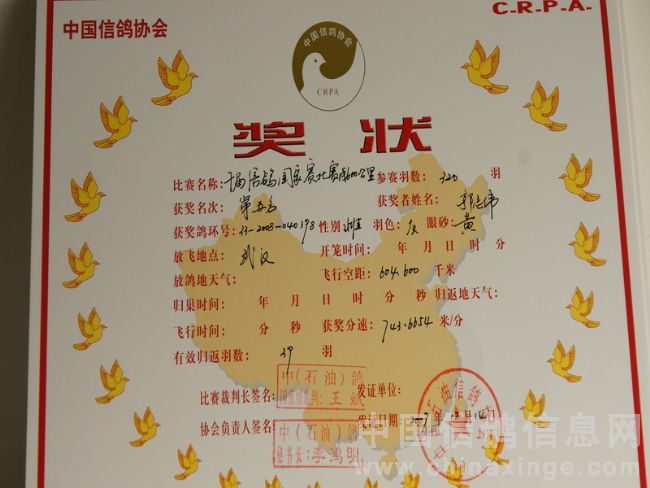 中国信鸽协会
C-R-P-A-
中国信鸽协会
CRPA
奖状
比赛名称： 信鸽国家赛 公里 参赛羽数： 320 羽
获奖名次： 第五名 获奖者姓名： 郭志伟
获奖鸽环号： -2008-040398 性别 雄 羽色： 灰 眼砂： 黄
放飞地点： 武汉 开笼时间： 年 月 日 时 分
放鸽地天气： 飞行空距： 604.600 千米
归巢时间： 年 月 日 时 分 秒 归返地天气：
飞行时间： 分 秒 获奖分速： 743.6654 米/分
有效归返羽数： 39 羽
中（石油）鸽
比赛裁判长签名： 王斌 发证单位：
协会负责人签名： 中（石油）鸽 发证日期： 年 月 日
秘书长：李鸿明
石油信鸽
中国信鸽信息网
www.chinaxinge.com